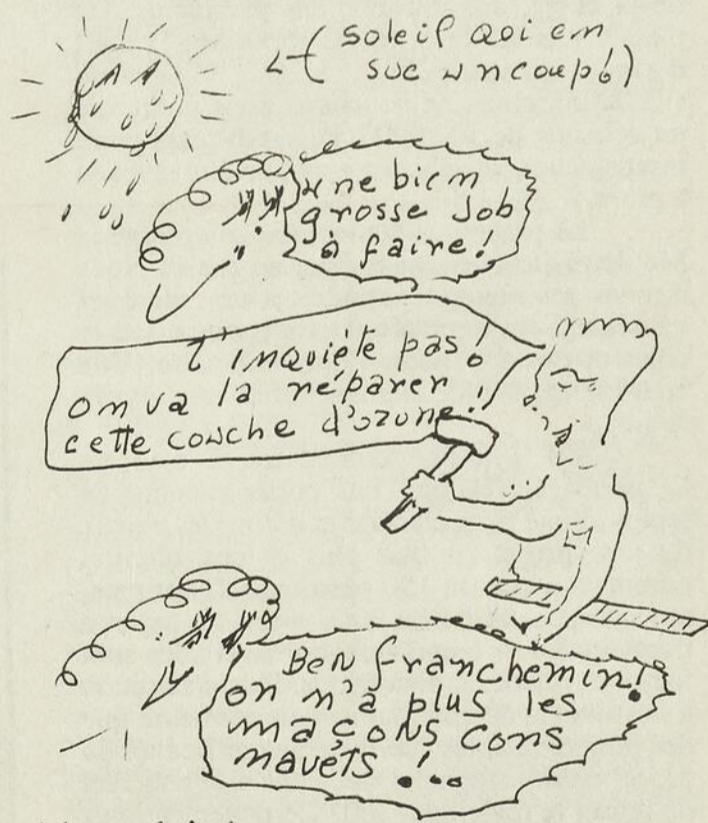 (soleil qoi en
suc un coup!)
une bien
grosse job
à faire!
t'inquiète pas!
on va la réparer
cette couche d'ozone!
Ben franchemin!
on n'a plus les
maçons cons
navets!...